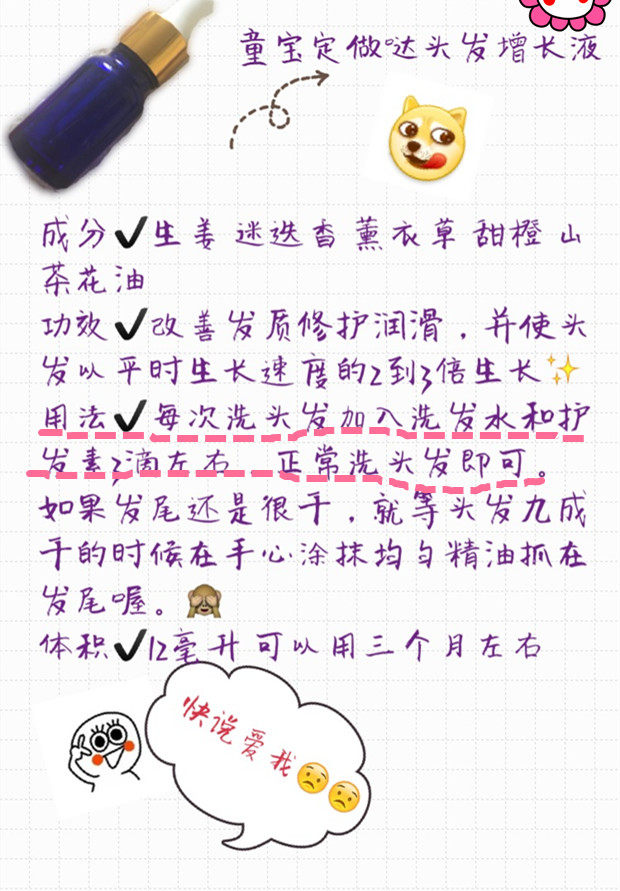 童宝定做哒头发增长液
成分✔生姜 迷迭香 薰衣草 甜橙 山
茶花油
功效✔改善发质修护润滑，并使头
发以平时生长速度的2到3倍生长✨
用法✔每次洗头发加入洗发水和护
发素3滴左右 正常洗头发即可。
如果发尾还是很干，就等头发九成
干的时候在手心涂抹均匀精油抓在
发尾喔。🙈
体积✔12毫升可以用三个月左右
快说爱我😟😟